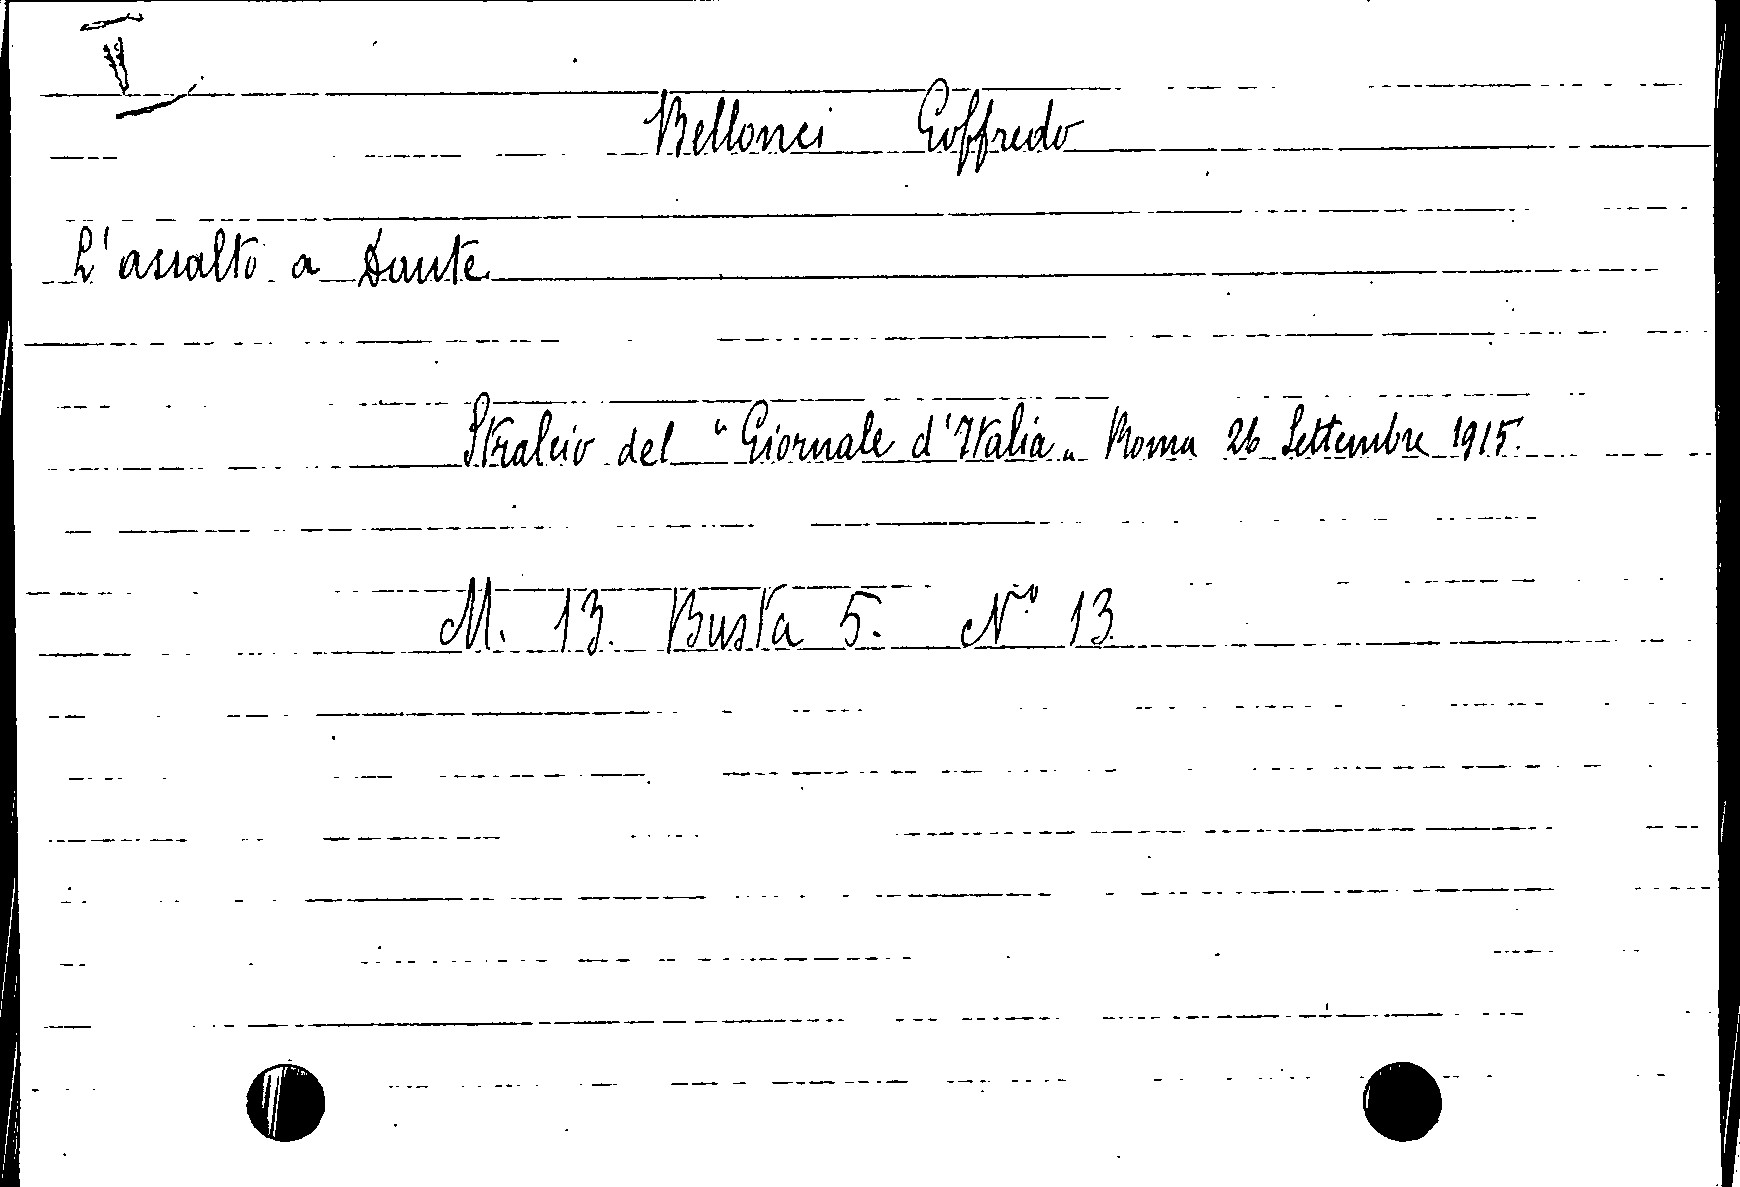 Bellonci Goffredo
L'assalto a Dante
Stralcio del "Giornale d'Italia„ Roma 26 Settembre 1915.
M. 13. Busta 5. N° 13